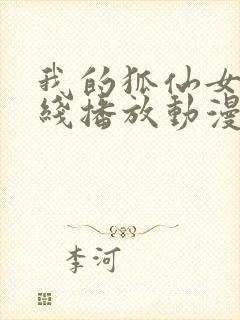 我的狐仙女
綫播放動漫
李河